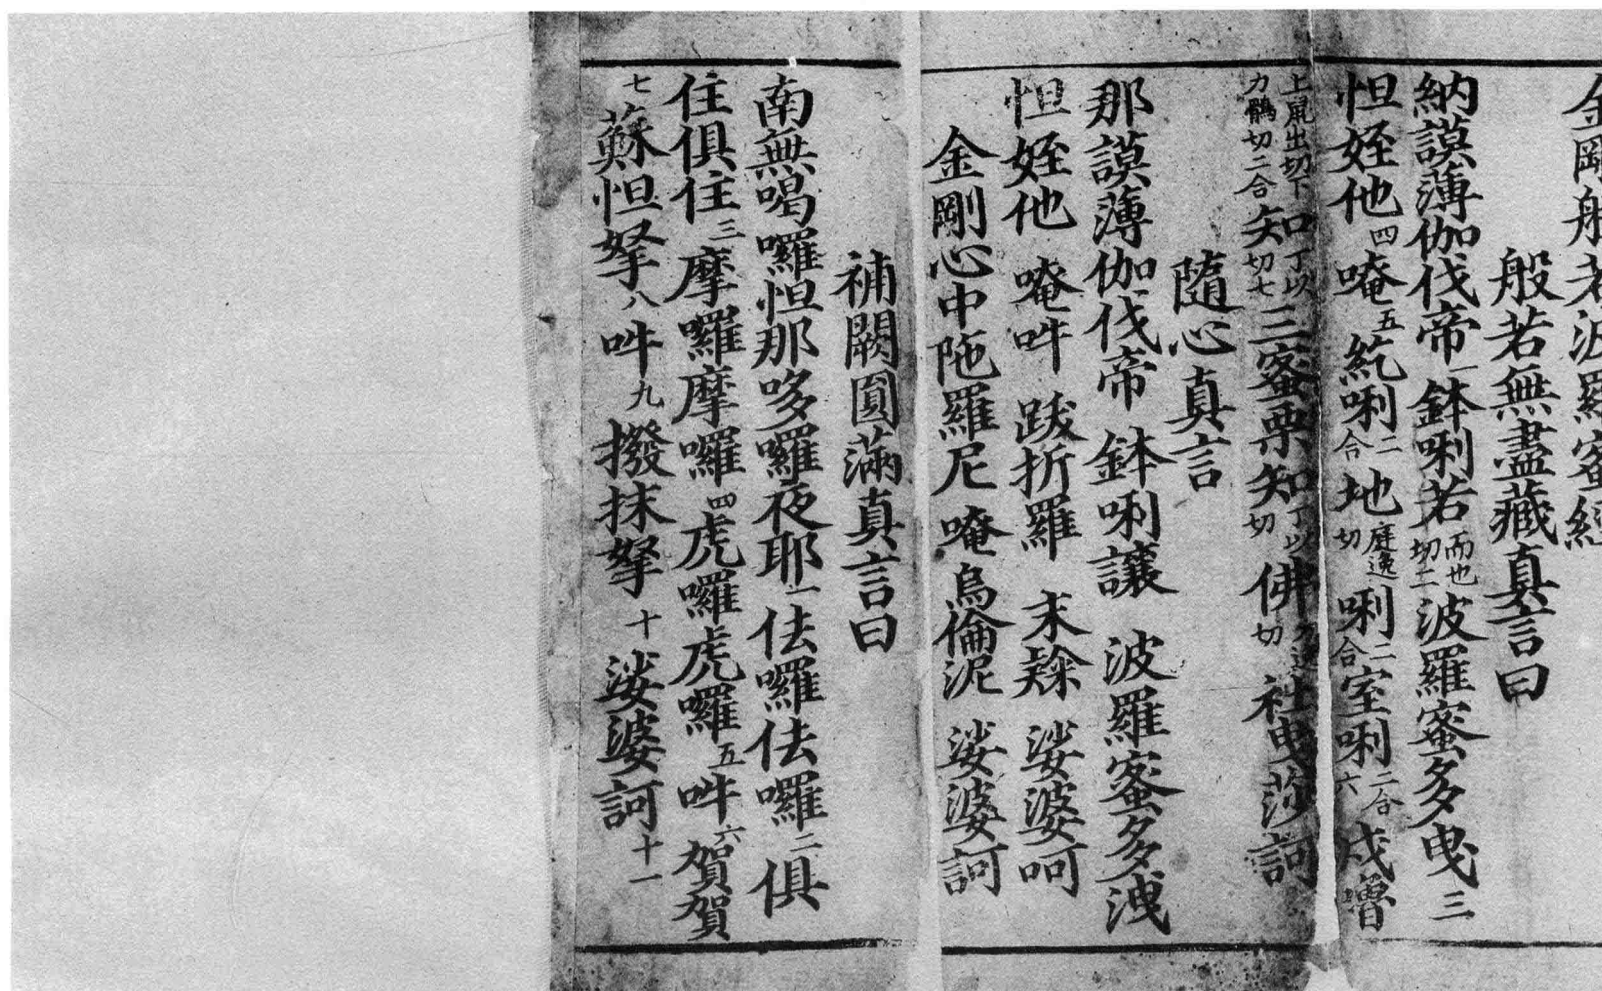 金剛般若波羅蜜經
般若無盡藏真言曰
納謨薄伽伐帝一鉢唎若而也切二波羅蜜多曳三
怛姪他四唵五紇唎二合地庭逸切唎二合室唎二合六戍嚕
上鼠出切下力鶻切二合知丁以切七三蜜栗知丁以切佛切社曳莎訶
隨心真言
那謨薄伽伐帝 鉢唎讓 波羅蜜多洩
怛姪他 唵吽 跋折羅 末 娑婆呵
金剛心中陁羅尼 唵烏倫泥 娑婆訶
補闕圓滿真言曰
南無喝囉怛那哆囉夜耶一佉囉佉囉二俱
住俱住三摩囉摩囉四虎囉虎囉五吽六賀賀
七蘇怛拏八吽九撥抹拏十娑婆訶十一